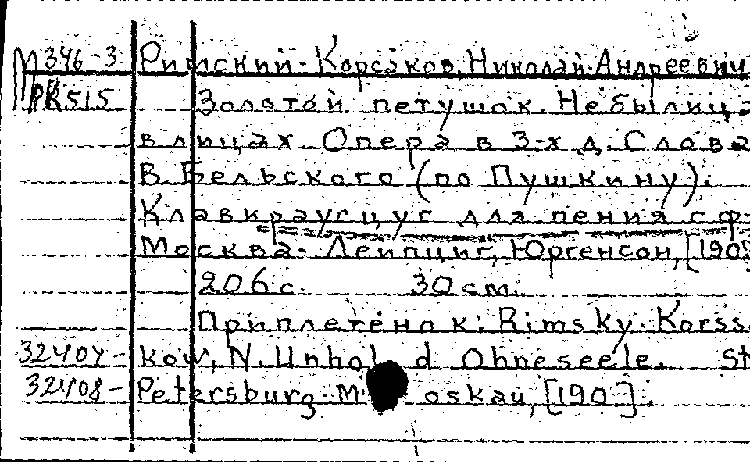 М 346-3 Римский-Корсаков, Николай Андреевич
РК515 Золотой петушок. Небылица
в лицах. Опера в 3-х д. Слова
В. Бельского (по Пушкину).
Клавираусцуг для пения с ф
Москва-Лейпциг, Юргенсон, [190
206 с. 30 см.
Приплетено к: Rimsky-Korssa
32407- kow, N. Unhold Ohneseele. St
32408- Petersburg-Moskau, [190 ].